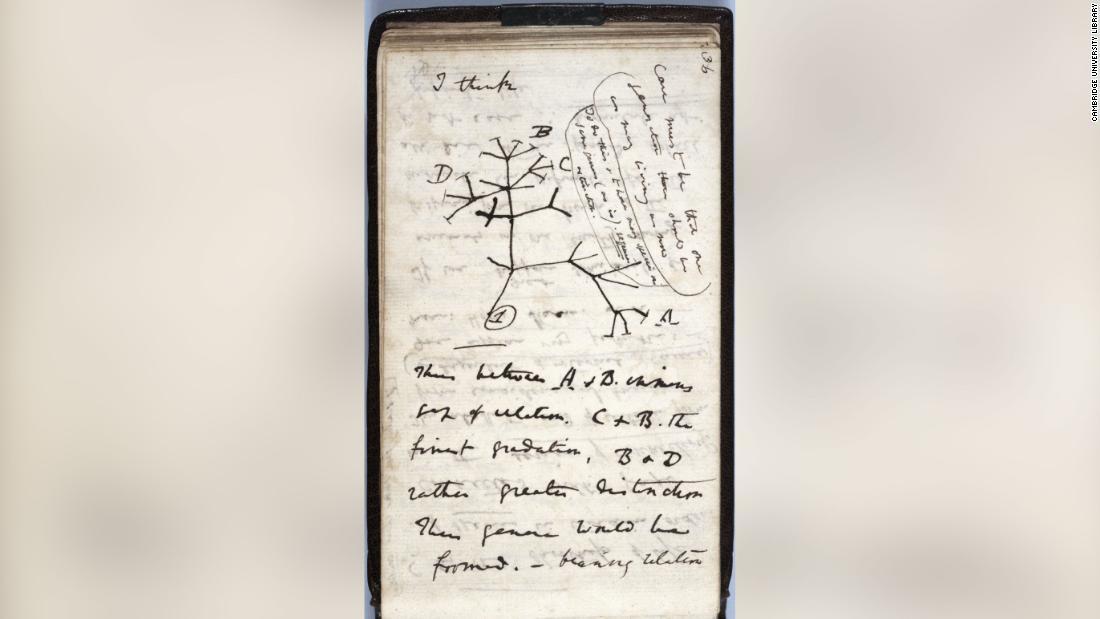 36
I think
Case must be that one
generation then should be
as many living as now
To do this & to have many species in
same genus (as is) requires
extinction.
B
C
D
A
1
Thus between A & B. immense
gap of relation. C & B. the
finest gradation, B & D
rather greater distinction
Thus genera would be
formed. — bearing relation
CAMBRIDGE UNIVERSITY LIBRARY